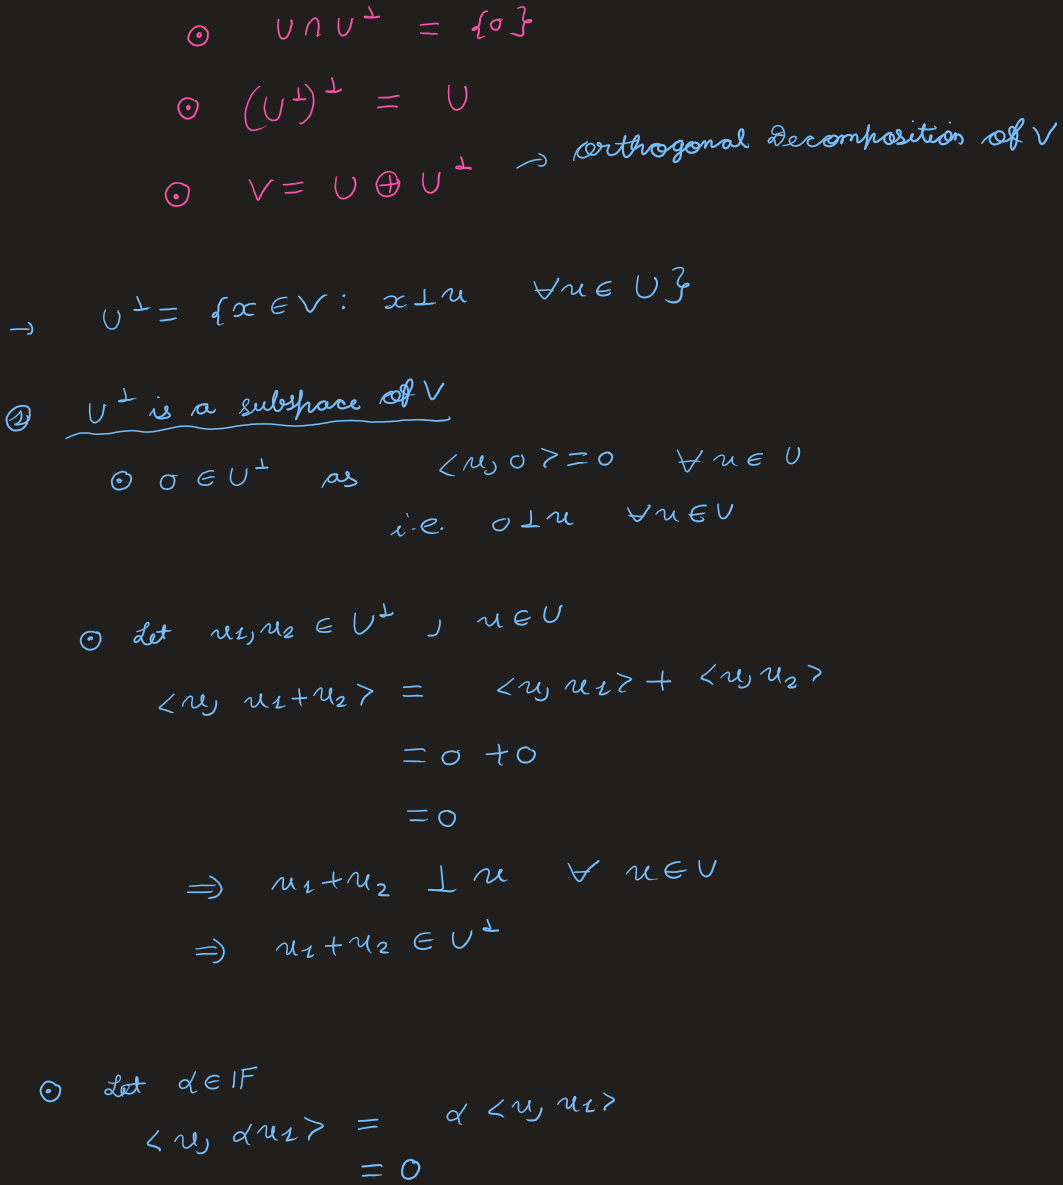 ⊙ U ∩ U^⊥ = {0}
⊙ (U^⊥)^⊥ = U
⊙ V = U ⊕ U^⊥ → Orthogonal Decomposition of V
→ U^⊥ = {x ∈ V : x ⊥ u ∀ u ∈ U}
① U^⊥ is a subspace of V
⊙ 0 ∈ U^⊥ as <u, 0> = 0 ∀ u ∈ U
i.e. 0 ⊥ u ∀ u ∈ U
⊙ Let u1, u2 ∈ U^⊥ , u ∈ U
<u, u1+u2> = <u, u1> + <u, u2>
= 0 + 0
= 0
⇒ u1+u2 ⊥ u ∀ u ∈ U
⇒ u1+u2 ∈ U^⊥
⊙ Let α ∈ IF
<u, αu1> = α <u, u1>
= 0